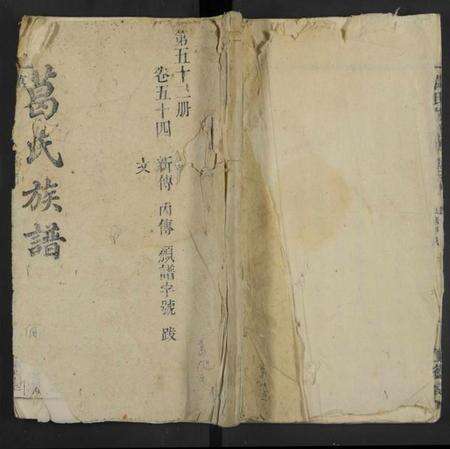 葛氏族譜
第五十二册
卷五十四 新傳 内傳 領譜字號 跋
文